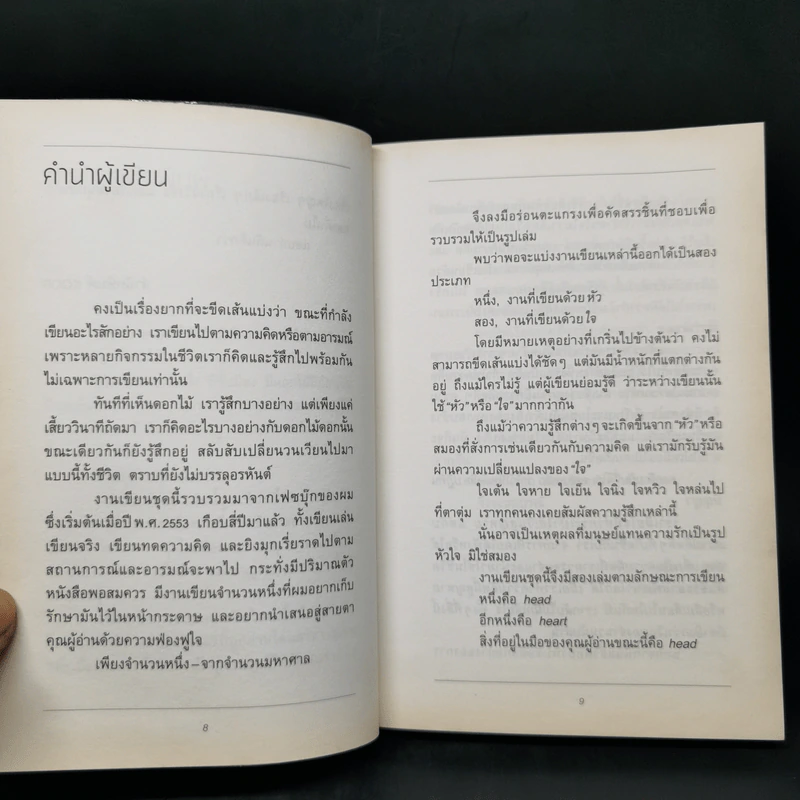 คำนำผู้เขียน
คงเป็นเรื่องยากที่จะขีดเส้นแบ่งว่า ขณะที่กำลัง
เขียนอะไรสักอย่าง เราเขียนไปตามความคิดหรือตามอารมณ์
เพราะหลายกิจกรรมในชีวิตเราก็คิดและรู้สึกไปพร้อมกัน
ไม่เฉพาะการเขียนเท่านั้น
ทันทีที่เห็นดอกไม้ เรารู้สึกบางอย่าง แต่เพียงแค่
เสี้ยววินาทีถัดมา เราก็คิดอะไรบางอย่างกับดอกไม้ดอกนั้น
ขณะเดียวกันก็ยังรู้สึกอยู่ สลับสับเปลี่ยนวนเวียนไปมา
แบบนี้ทั้งชีวิต ตราบที่ยังไม่บรรลุอรหันต์
งานเขียนชุดนี้รวบรวมมาจากเฟซบุ๊กของผม
ซึ่งเริ่มต้นเมื่อปี พ.ศ. 2553 เกือบสี่ปีมาแล้ว ทั้งเขียนเล่น
เขียนจริง เขียนทดความคิด และยิงมุกเรี่ยราดไปตาม
สถานการณ์และอารมณ์จะพาไป กระทั่งมีปริมาณตัว
หนังสือพอสมควร มีงานเขียนจำนวนหนึ่งที่ผมอยากเก็บ
รักษามันไว้ในหน้ากระดาษ และอยากนำเสนอสู่สายตา
คุณผู้อ่านด้วยความฟ่องฟูใจ
เพียงจำนวนหนึ่ง–จากจำนวนมหาศาล
8
จึงลงมือร่อนตะแกรงเพื่อคัดสรรชิ้นที่ชอบเพื่อ
รวบรวมให้เป็นรูปเล่ม
พบว่าพอจะแบ่งงานเขียนเหล่านี้ออกได้เป็นสอง
ประเภท
หนึ่ง, งานที่เขียนด้วย หัว
สอง, งานที่เขียนด้วย ใจ
โดยมีหมายเหตุอย่างที่เกริ่นไปข้างต้นว่า คงไม่
สามารถขีดเส้นแบ่งได้ชัดๆ แต่มันมีน้ำหนักที่แตกต่างกัน
อยู่ ถึงแม้ใครไม่รู้ แต่ผู้เขียนย่อมรู้ดี ว่าระหว่างเขียนนั้น
ใช้ "หัว" หรือ "ใจ" มากกว่ากัน
ถึงแม้ว่าความรู้สึกต่างๆ จะเกิดขึ้นจาก "หัว" หรือ
สมองที่สั่งการเช่นเดียวกันกับความคิด แต่เรามักรับรู้มัน
ผ่านความเปลี่ยนแปลงของ "ใจ"
ใจเต้น ใจหาย ใจเย็น ใจนิ่ง ใจหวิว ใจหล่นไป
ที่ตาตุ่ม เราทุกคนคงเคยสัมผัสความรู้สึกเหล่านี้
นั่นอาจเป็นเหตุผลที่มนุษย์แทนความรักเป็นรูป
หัวใจ มิใช่สมอง
งานเขียนชุดนี้จึงมีสองเล่มตามลักษณะการเขียน
หนึ่งคือ head
อีกหนึ่งคือ heart
สิ่งที่อยู่ในมือของคุณผู้อ่านขณะนี้คือ head
9